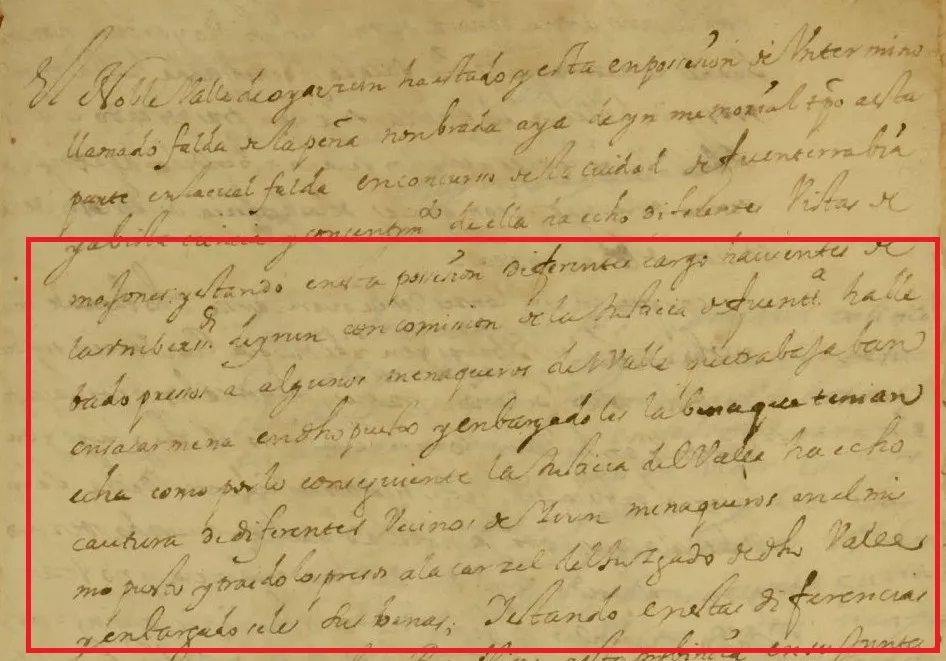 El Noble Valle de oyarzun ha estado y esta en posesion de Vn termino
llamado falda de la peña nonbrada aya de yn memorial tpo aesta
parte en la cual falda en concurso de la ciudad de fuenterrabia
y a bista ciencia y consentimto de ella ha echo diferentes Vistas de
mojones, y estando en esta posesion diferentes cargo havientes de
la Vniberd. de yrun con comision de la Justicia de fuenta. ha lle
bado presos a algunos menaqueros del Valle que trabajaban
en sacar mena en dho puesto y enbargadoles la bena que tenian
echa como por lo consiguiente la Justicia del Valle ha echo
cautura de diferentes Vecinos de Yrun menaqueros en el mis
mo puesto y traidolos presos a la carzel del Juzgado de dho Valle
y enbargadoseles sus benas; Y estando en estas diferencias
en su Junta